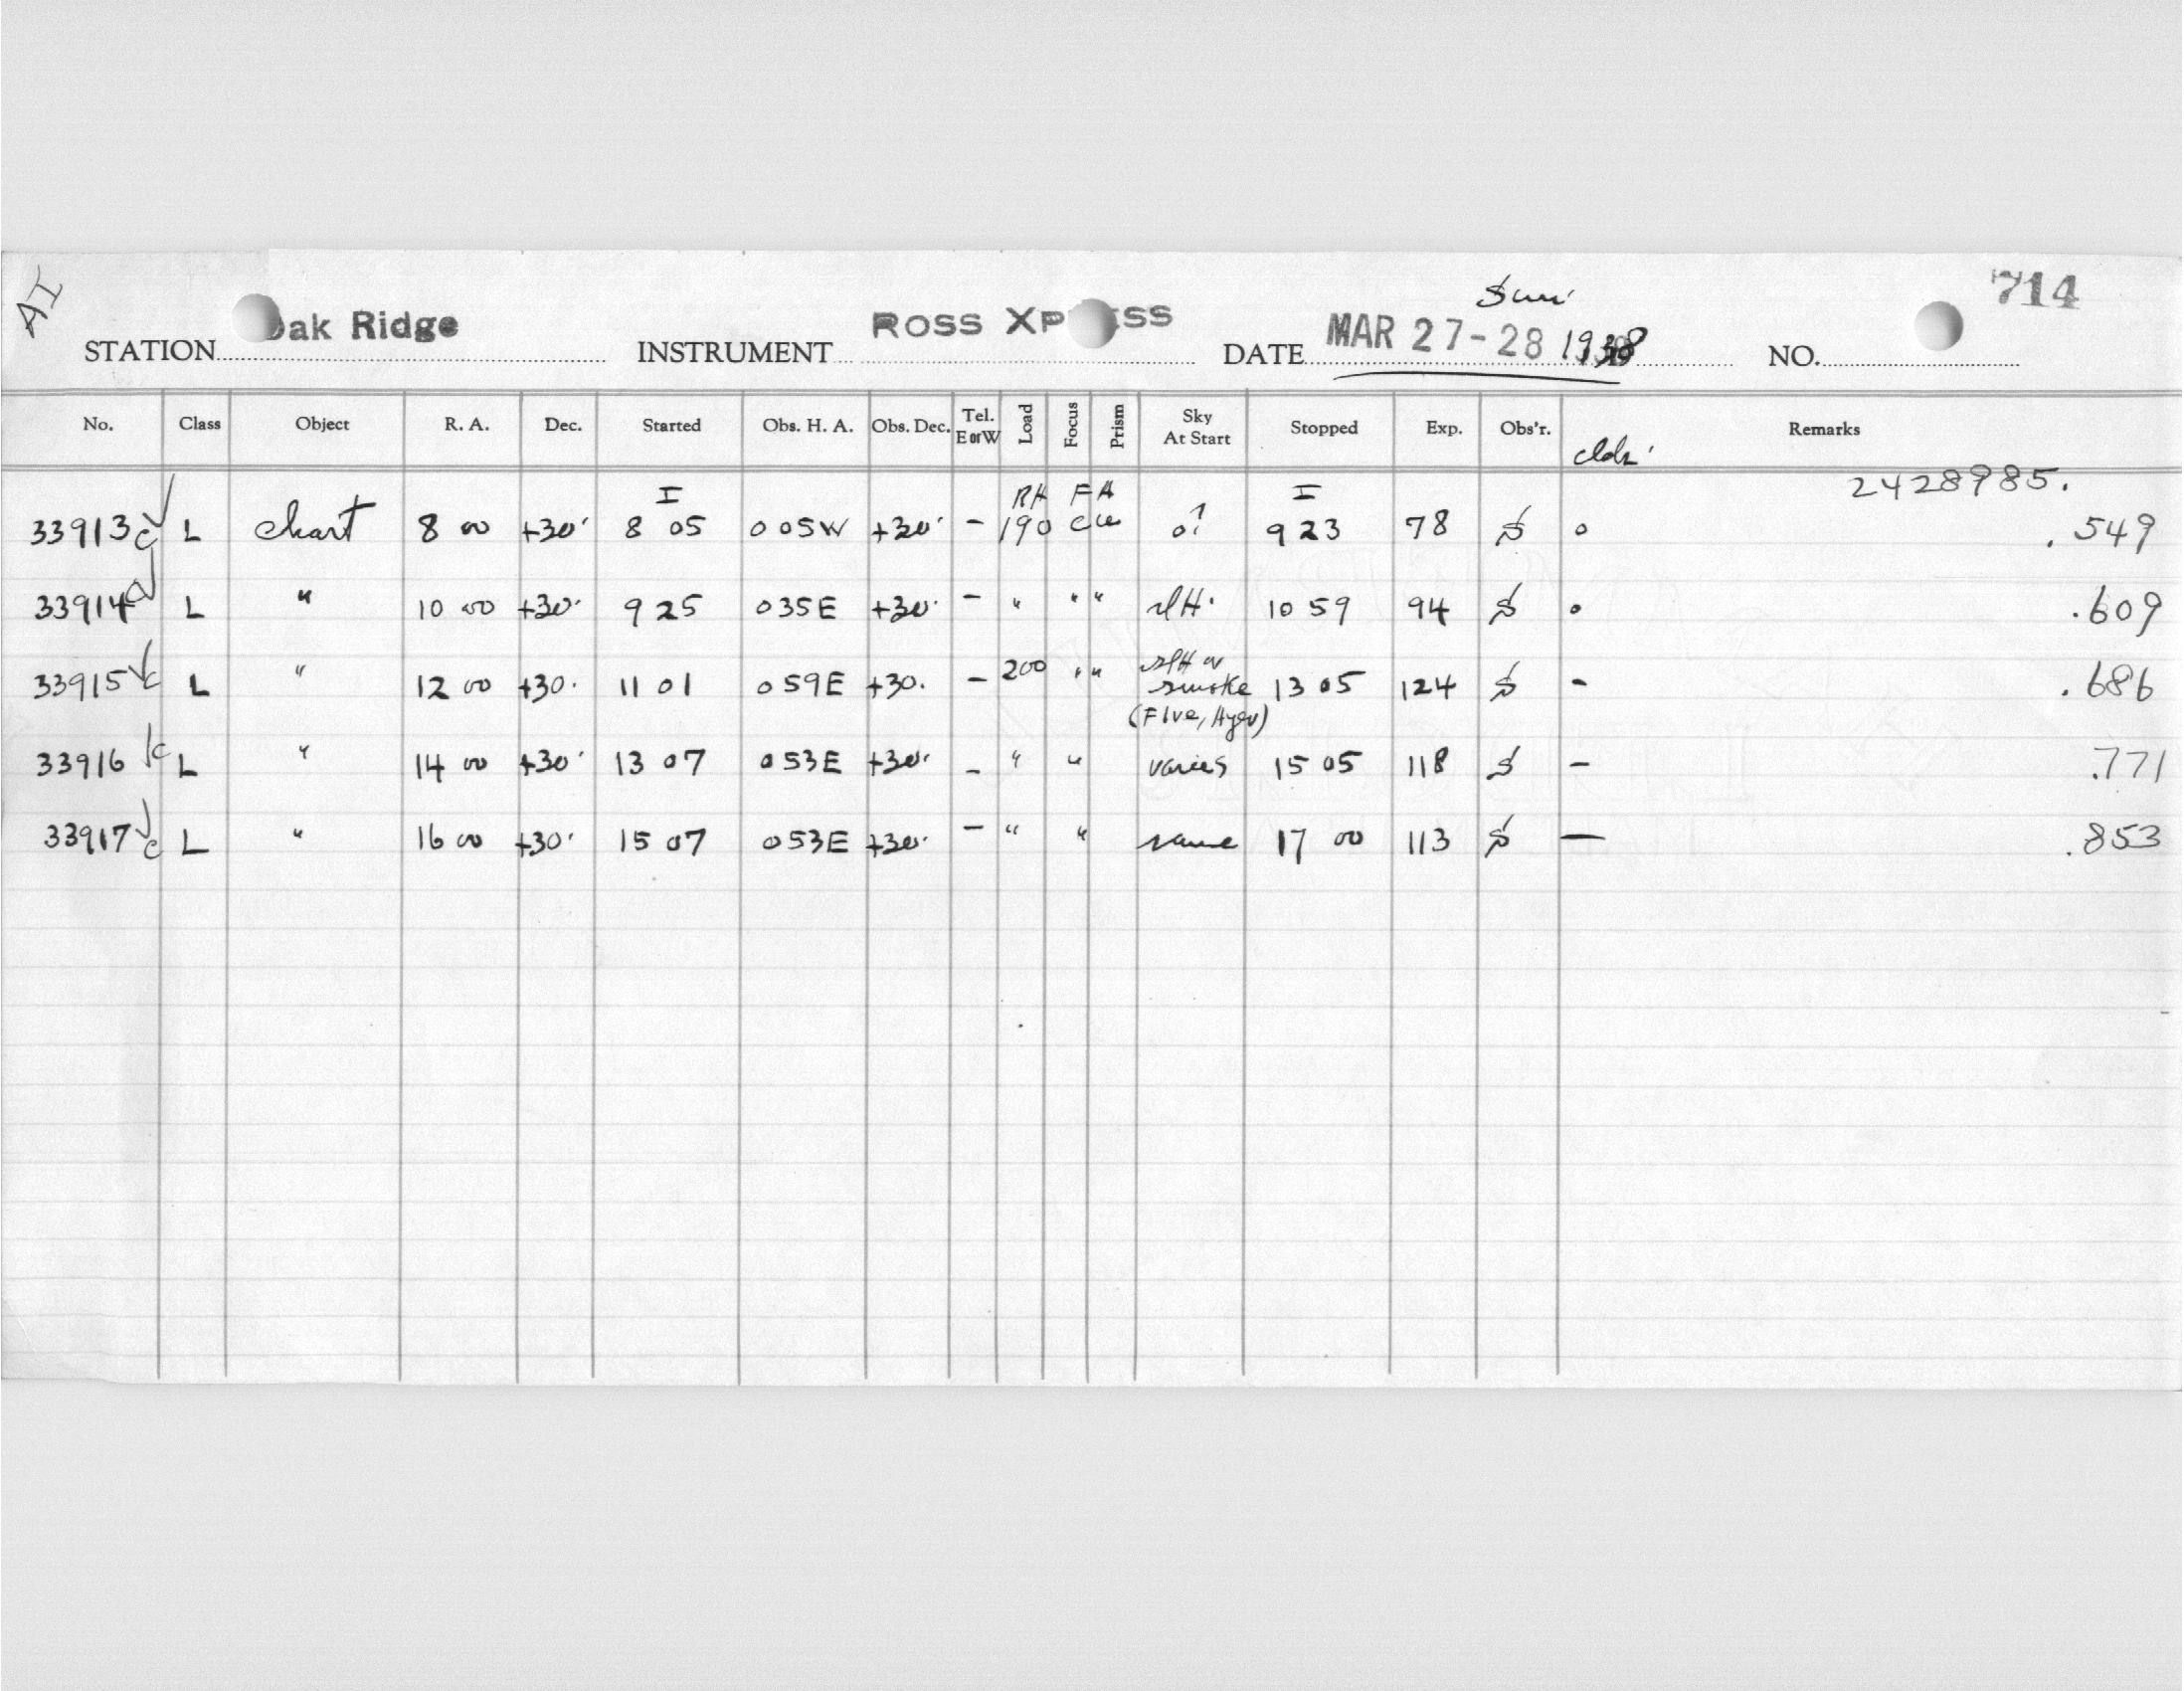 AI
Sun.
714
STATION Oak Ridge INSTRUMENT ROSS XPRESS DATE MAR 27-28 1938 NO.
No. Class Object R. A. Dec. Started Obs. H. A. Obs. Dec. Tel. E or W Load Focus Prism Sky At Start Stopped Exp. Obs'r. Remarks
2428985.
I RH FA I
33913 c L chart 8 00 +30 8 05 0 05W +30 - 190 0? 9 23 78 S 0 .549
33914 a L " 10 00 +30 9 25 0 35E +30 - " " " slH. 10 59 94 S 0 .609
33915 c L " 12 00 +30 11 01 0 59E +30 - 200 " " slH or smoke 13 05 124 S - .686
(Fire, Ayer)
33916 c L " 14 00 +30 13 07 0 53E +30 - " " varies 15 05 118 S - .771
33917 c L " 16 00 +30 15 07 0 53E +30 - " " same 17 00 113 S — .853